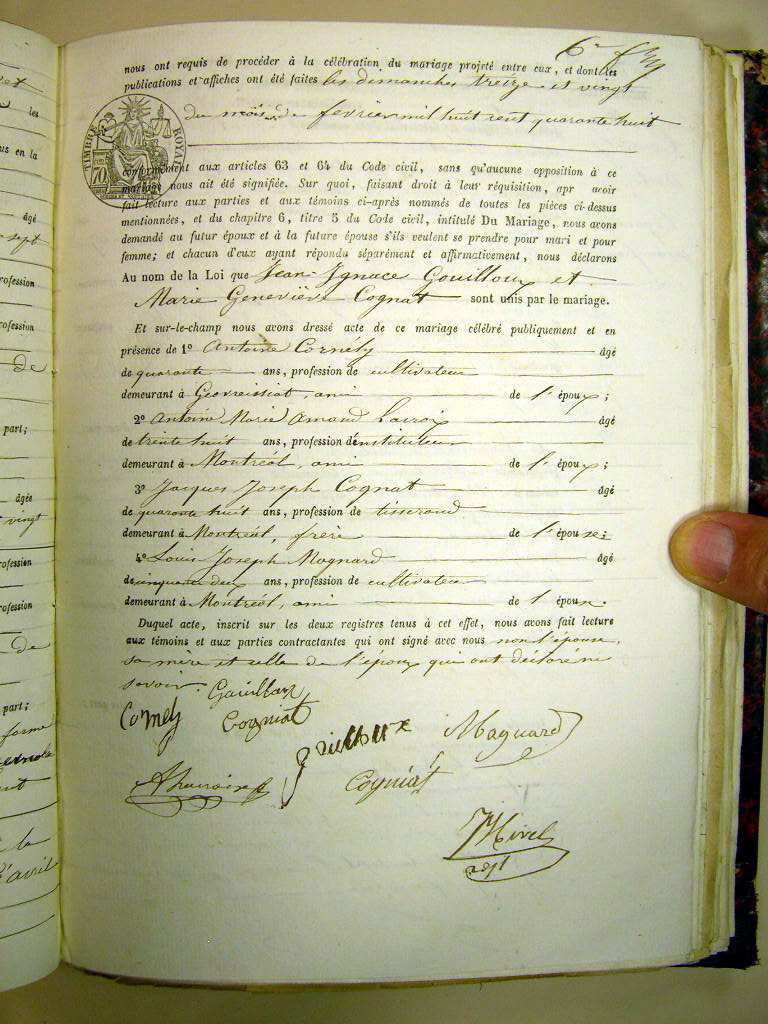 6e
nous ont requis de procéder à la célébration du mariage projeté entre eux, et dont les
publications et affiches ont été faites les dimanches treize et vingt
du mois de fevrier mil huit cent quarante huit
TIMBRE ROYAL
70
conformément aux articles 63 et 64 du Code civil, sans qu'aucune opposition à ce
mariage nous ait été signifiée. Sur quoi, faisant droit à leur réquisition, apr avoir
fait lecture aux parties et aux témoins ci-après nommés de toutes les pièces ci-dessus
mentionnées, et du chapitre 6, titre 5 du Code civil, intitulé Du Mariage, nous avons
demandé au futur époux et à la future épouse s'ils veulent se prendre pour mari et pour
femme; et chacun d'eux ayant répondu séparément et affirmativement, nous déclarons
Au nom de la Loi que Jean-Ignace Gouilloux et
Marie Geneviève Cognat sont unis par le mariage.
Et sur-le-champ nous avons dressé acte de ce mariage célébré publiquement et en
présence de 1º Antoine Cornély âgé
de quarante ans, profession de cultivateur
demeurant à Geovreissiat, ami de l'époux;
2º Antoine Marie Amand Lavroix âgé
de trente huit ans, profession d'instituteur
demeurant à Montréal, ami de l'époux;
3º Jacques Joseph Cognat âgé
de quarante huit ans, profession de tisserand
demeurant à Montréal, frère de l'épouse;
4º Louis Joseph Magnard âgé
de cinquante deux ans, profession de cultivateur
demeurant à Montréal, ami de l'époux.
Duquel acte, inscrit sur les deux registres tenus à cet effet, nous avons fait lecture
aux témoins et aux parties contractantes qui ont signé avec nous non l'épouse,
sa mère et celle de l'époux qui ont déclaré ne
savoir. Gouilloux
Cornely Cogniat
Gouilloux Magnard
Cogniat
adjt